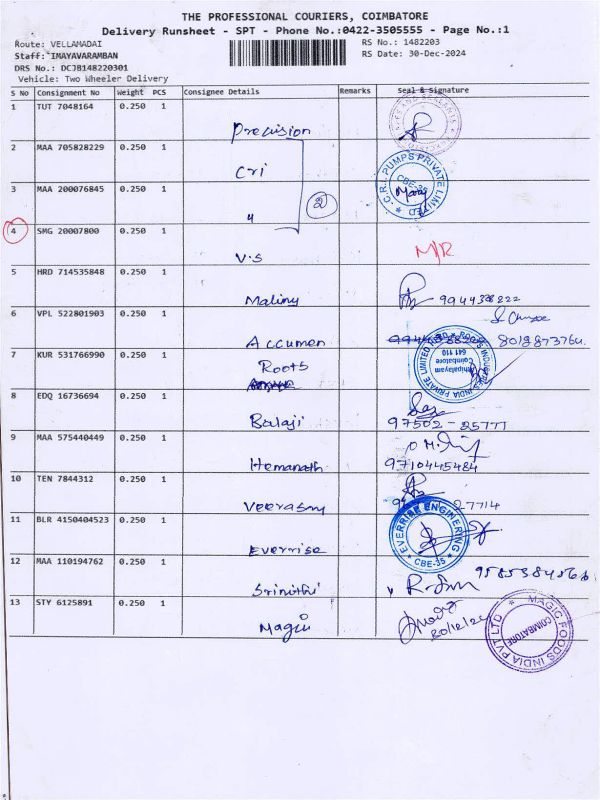 THE PROFESSIONAL COURIERS, COIMBATORE
Delivery Runsheet - SPT - Phone No.:0422-3505555 - Page No.:1
Route: VELLAMADAI RS No.: 1482203
Staff: IMAYAVARAMBAN RS Date: 30-Dec-2024
DRS No.: DCJB148220301
Vehicle: Two Wheeler Delivery
S No Consignment No Weight PCS Consignee Details Remarks Seal & Signature
1 TUT 7048164 0.250 1
Precision
2 MAA 705828229 0.250 1
Cri
C.R.I. PUMPS PRIVATE LIMITED
CBE-35
3 MAA 200076845 0.250 1
"
2
4 SMG 20007800 0.250 1
V.S M/R
5 HRD 714535848 0.250 1
Maliny
6 VPL 522801903 0.250 1
Accumen 8019873760
7 KUR 531766990 0.250 1
Roots
ROOTS INDUSTRIES INDIA PRIVATE LIMITED
Athipalayam
Coimbatore
641 110
8 EDQ 16736694 0.250 1
Balaji 97502-25777
9 MAA 575440449 0.250 1
Hemanath 9710445484
10 TEN 7844312 0.250 1
Veerasamy 27714
11 BLR 4150404523 0.250 1
Everrise
EVERRISE ENGINEERING
CBE-35
12 MAA 110194762 0.250 1
Srinithi
13 STY 6125891 0.250 1
Magic
30/12/24
MAGIC FOODS INDIA PVT LTD
COIMBATORE